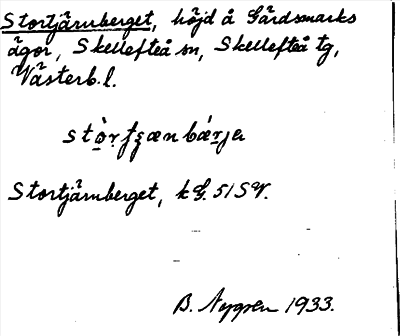 Stortjärnberget, höjd å Gärdsmarks
ägor, Skellefteå sn, Skellefteå tg,
Västerb.l.
Stortjärnberget, k 51SV.
B. Nygren 1933.